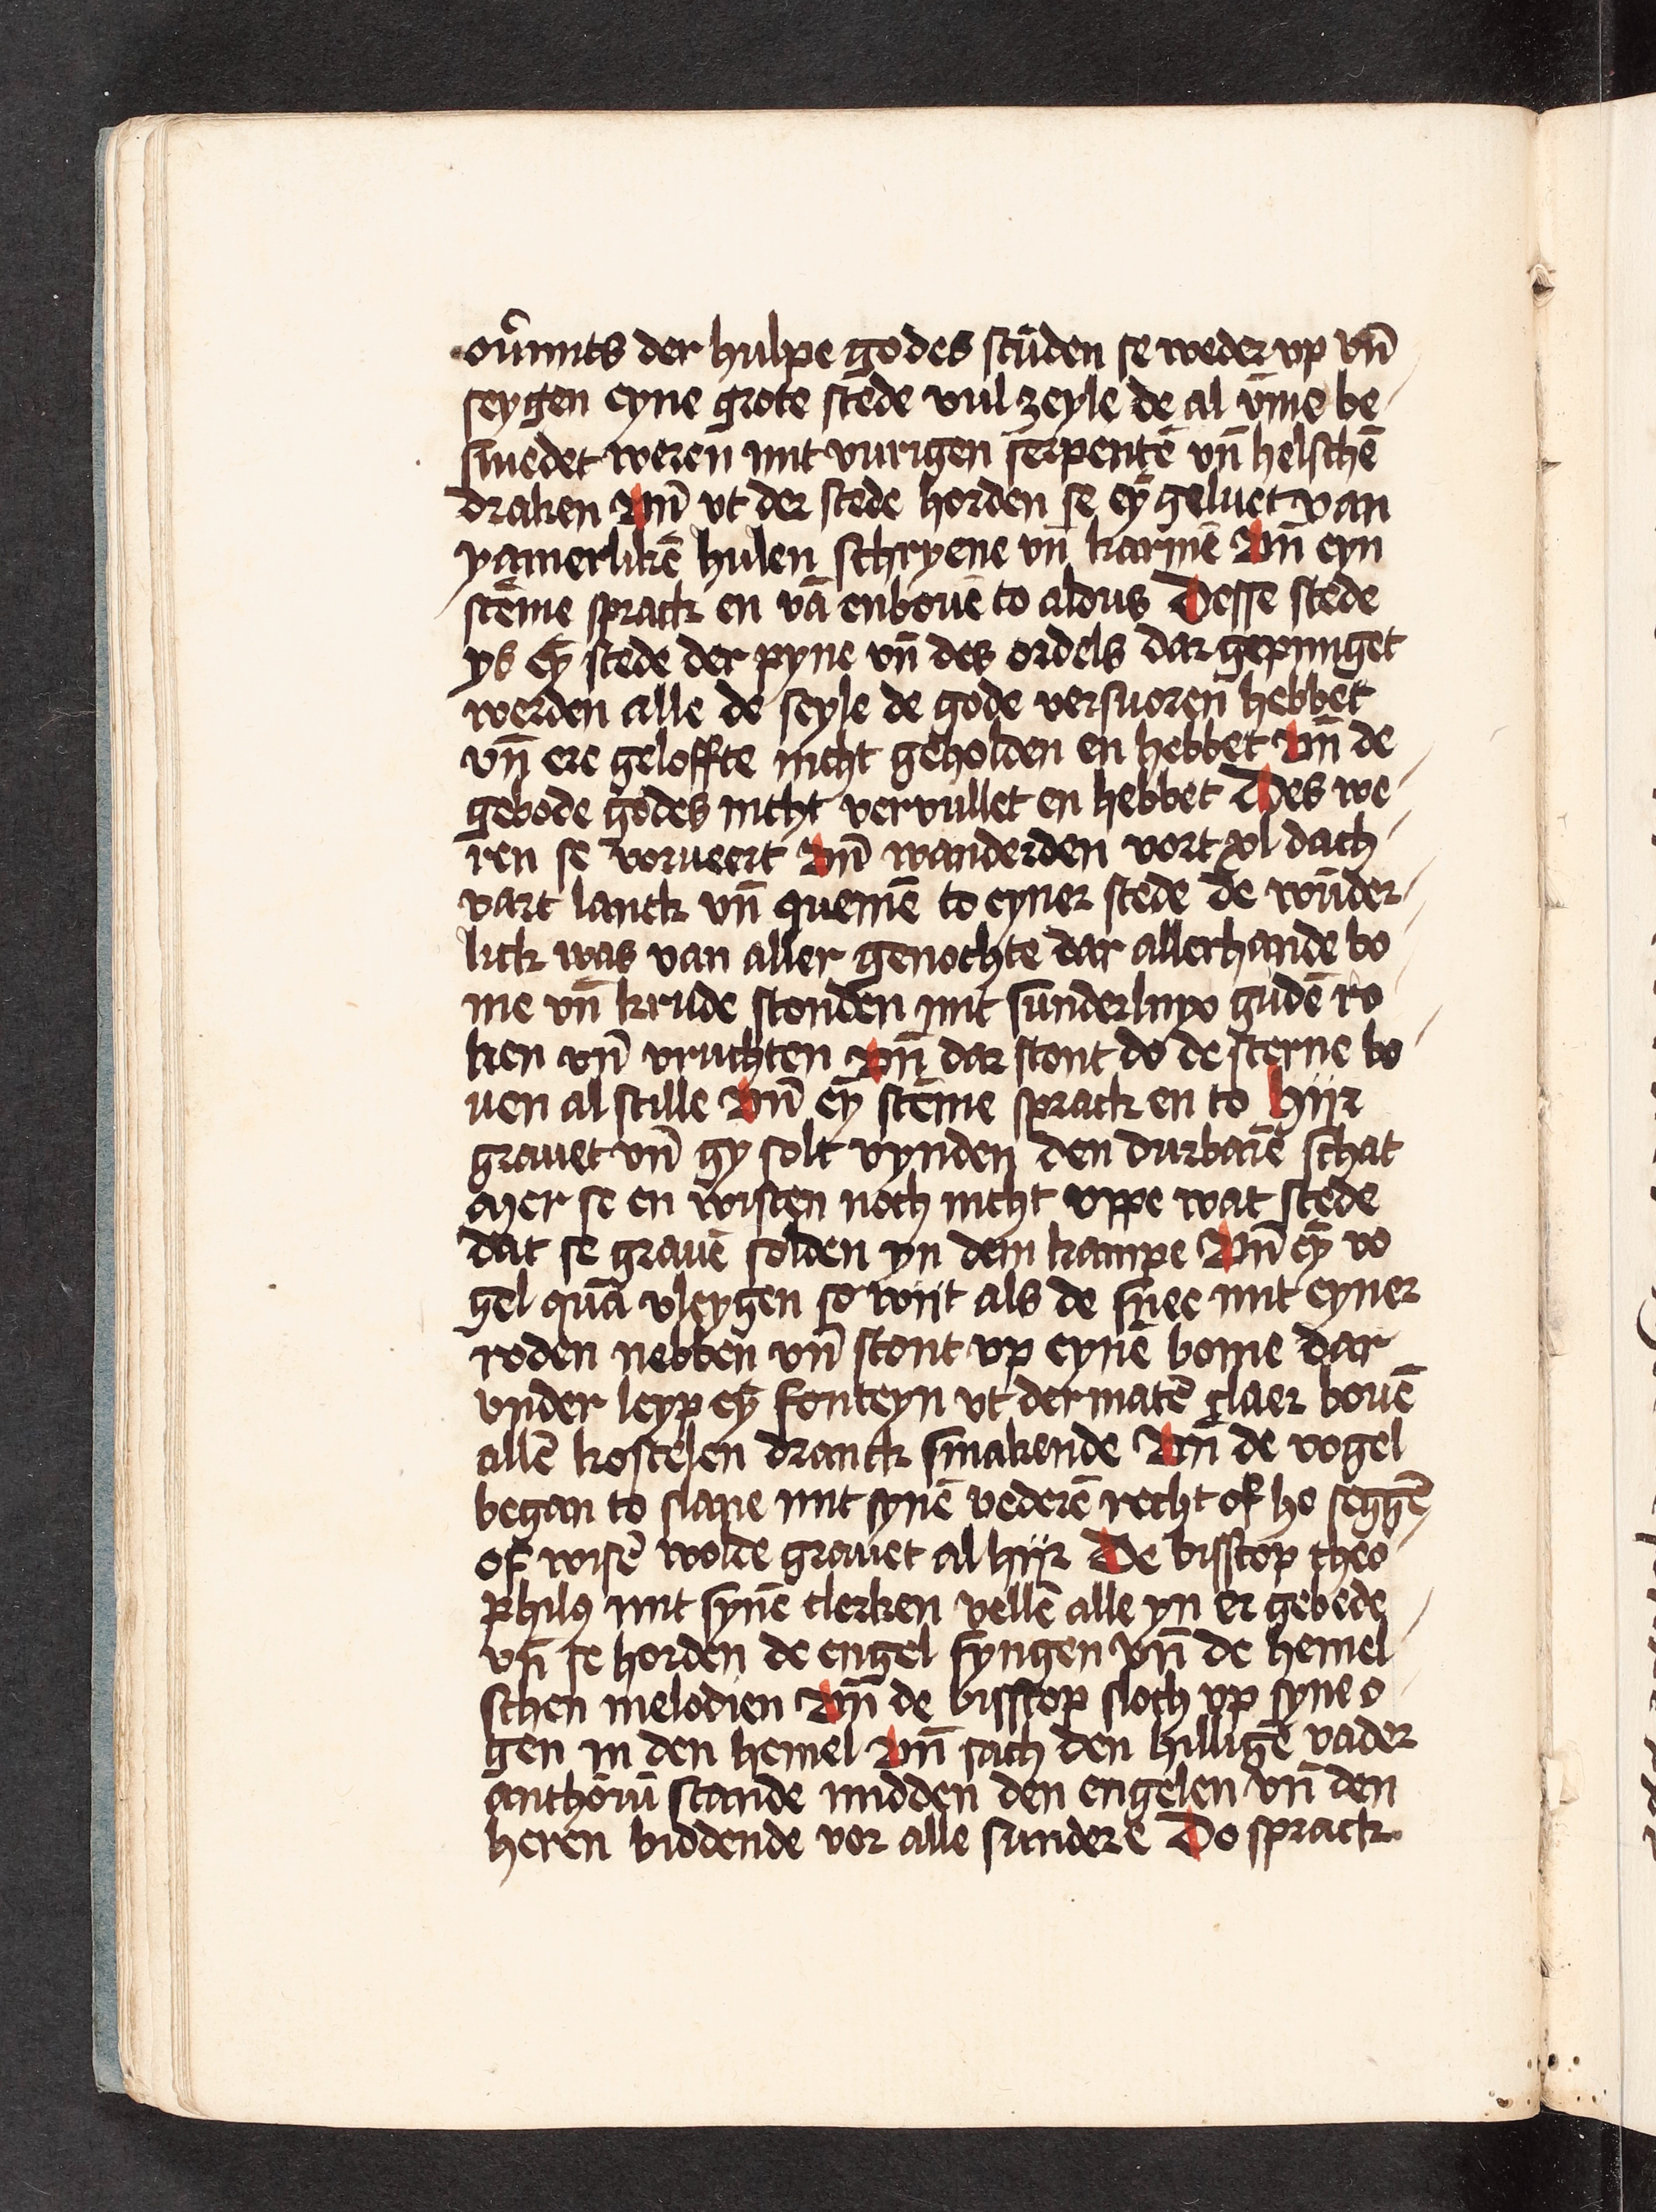 ou᷑mits der hulpe godes stūden se weder vp vn̄
seygen eyne grote stede vul zeyle de al v̄me be
smedet weren mit vurigen serpentē vn̄ helschē
draken Vn̄ vt der stede horden se eȳ geluet van
yamerlikē hulen schryene vn̄ karmē Vn̄ eyn
stēme sprack en vā enbouē to aldus Desse stede
ys eȳ stede der pyne vn̄ des ordels dar gepyniget
werden alle de seyle de gode versuoren hebbet
vn̄ ere geloffte nicht geholden en hebbet Vn̄ de
gebode godes nicht vervullet en hebbet Des we
ren se vorueert Vn̄ wanderden vort xl dach
vart lanck vn̄ quemē to eyner stede de wūder
lick was van aller genochte dar allerhande bo
me vn̄ krude stonden mit sunderlinx gudē ro
ken vn̄ vruchten Vn̄ dar stont do de sterne bo
uen al stille Vn̄ eȳ stēme sprack en to Hijr
grauet vn̄ gy solt vynden den durbarē schat
Mer se en wisten noch nicht vppe wat stede
dat se grauē solden yn dem kampe Vn̄ eȳ vo
gel quā vleygen so wijt als de snee mit eyner
roden nebben vn̄ stont vp eynē bome dar
vnder leyp eȳ fonteyn vt dermatē claer bouē
allē kostelen dranck smakende Vn̄ de vogel
began to slane mit synē vederē recht of he seggē
of wisē wolde grauet al hijr De bisscop theo
philꝰ mit synē clerken vellē alle yn er gebede
vn̄ se horden de engel syngen vn̄ de hemel
schen melodien Vn̄ de bisscop sloch vp syne o
gen in den hemel Vn̄ sach den hilligē vader
anthoniū stande midden den engelen vn̄ den
heren biddende vor alle sunderē Do sprack